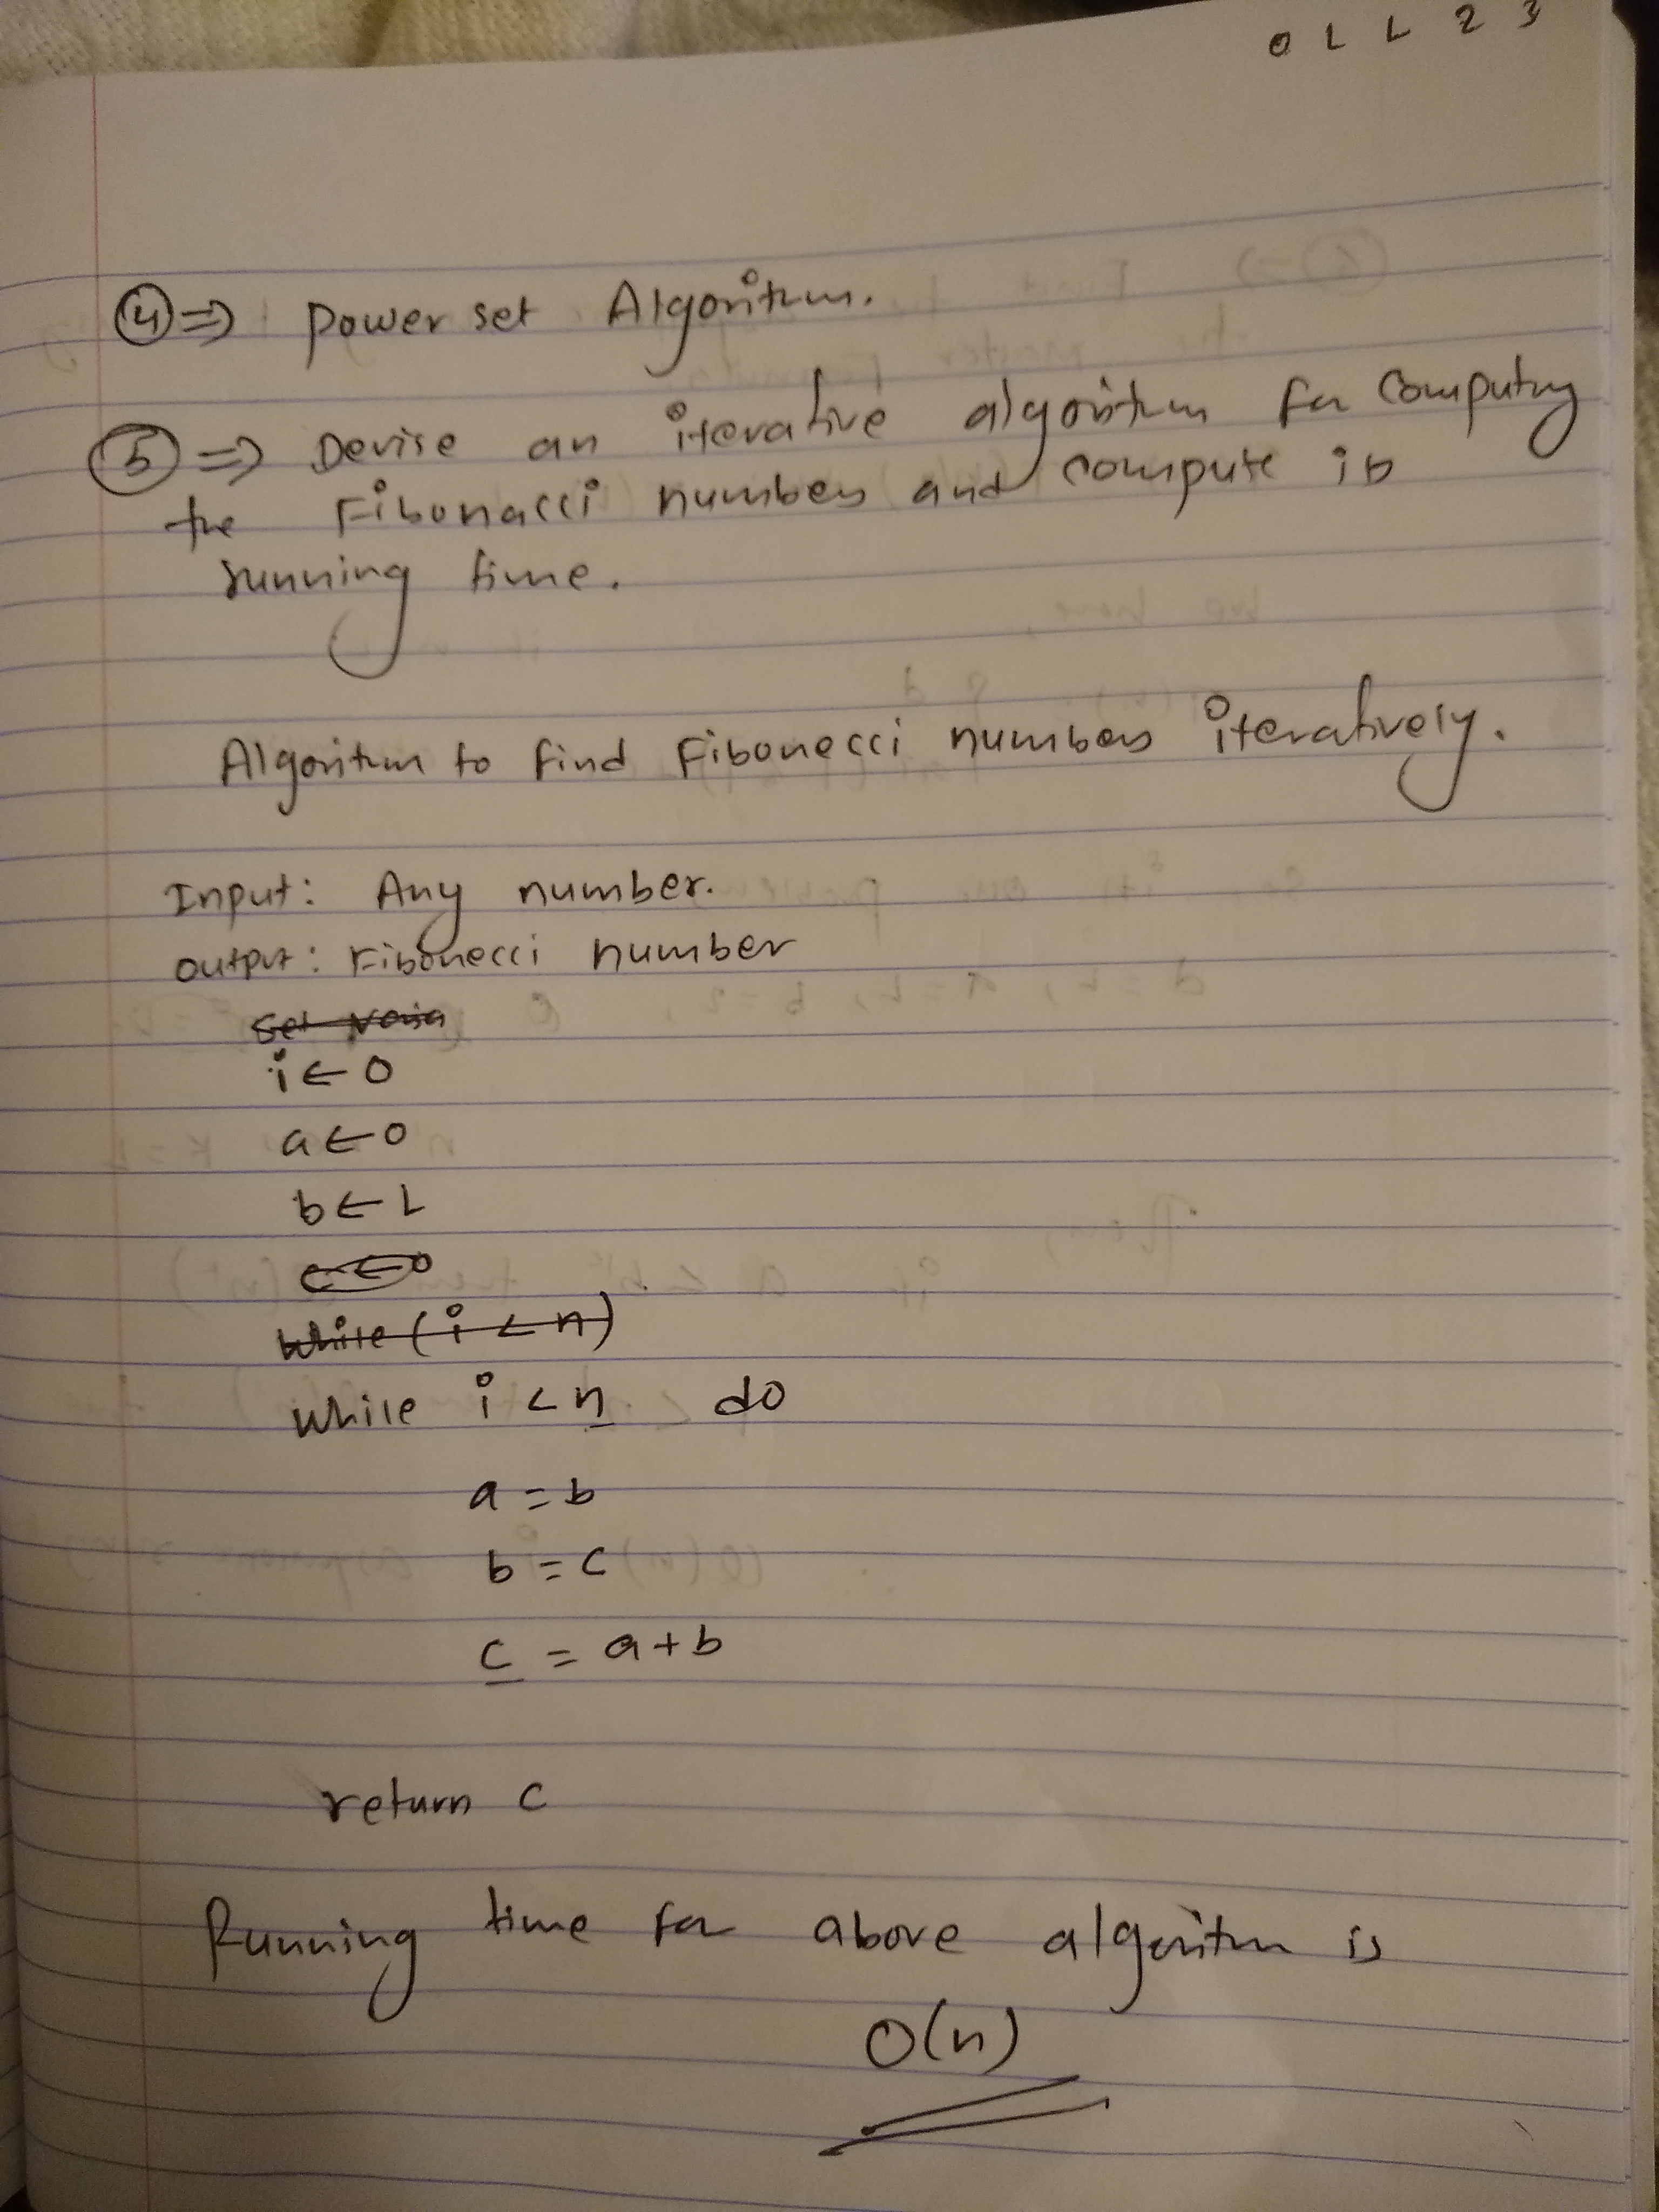 0 1 1 2 3
④ => power set Algorithm.
⑤ => Devise an iterative algorithm for computing
the Fibonacci numbers and compute its
running time.
Algorithm to find Fibonecci numbers iteratively.
Input: Any number.
output: Fibonecci number
i ← 0
a ← 0
b ← 1
c ← 0
while (i < n)
while i < n do
a = b
b = c
c = a + b
return c
Running time for above algorithm is
O(n)